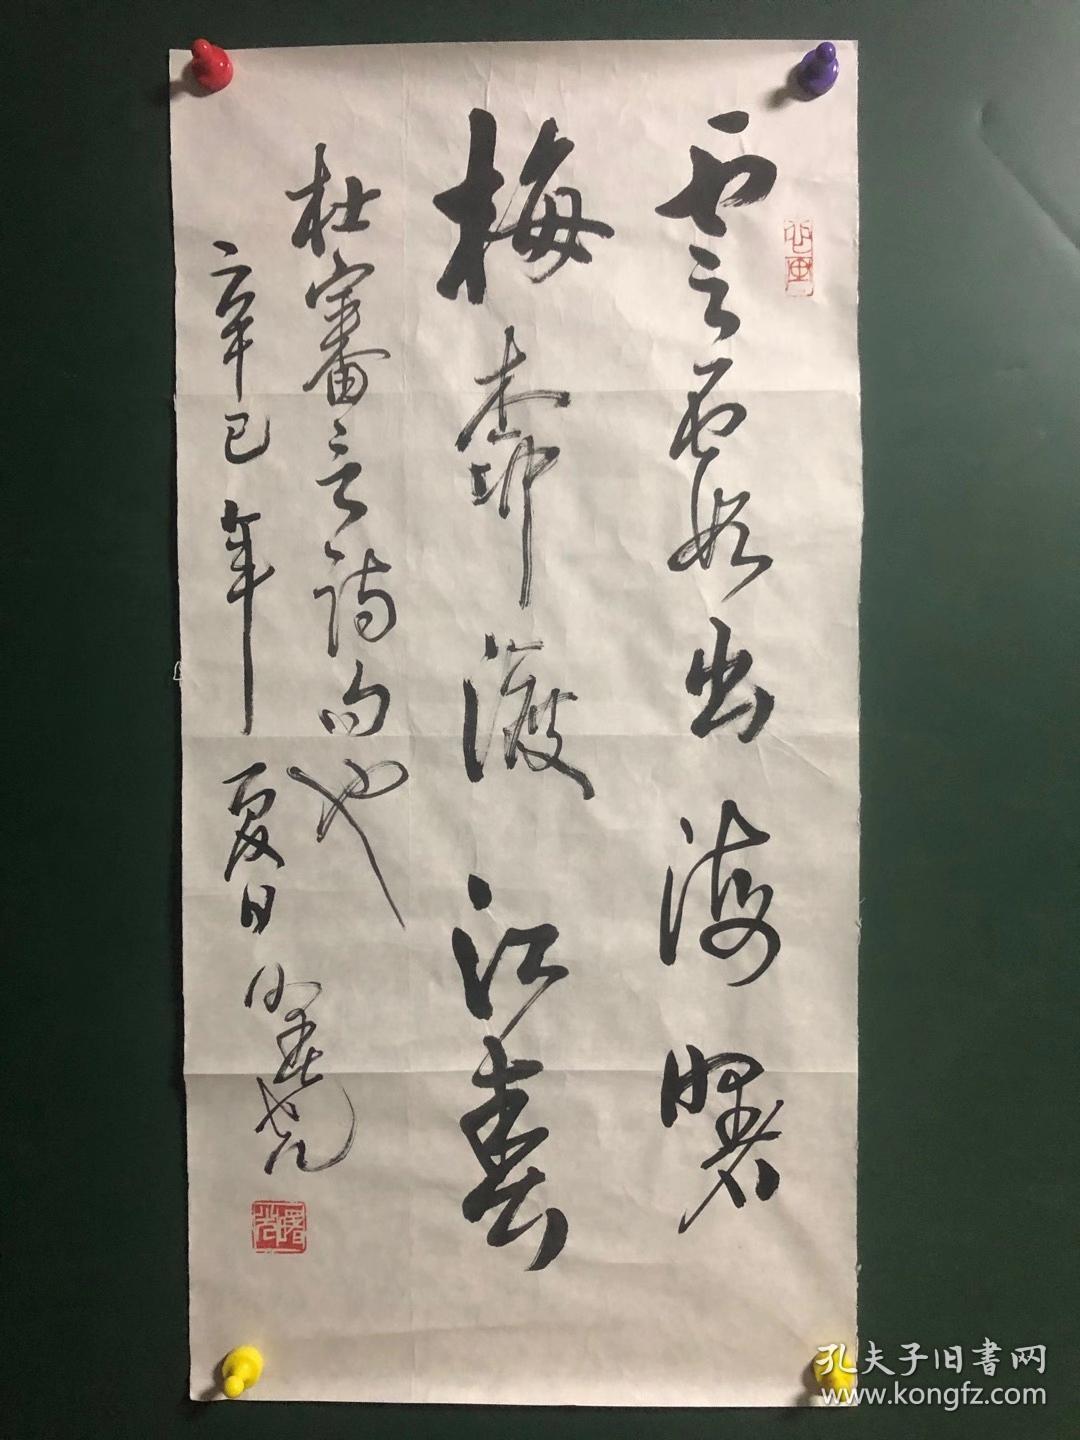 雲霞出海曙
梅柳渡江春
杜審言詩句也
辛巳年夏日曙光
曙光
孔夫子旧書网
www.kongfz.com